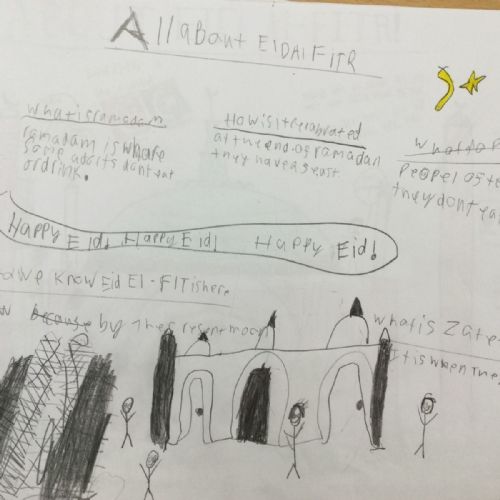 All about EID Al FITR
what is ramadam
ramadam is whare
some adolts dont eat
or drink.
How is it celabrated
at the end of ramadan
they have a feast.
What do P
Peopel
they dont eat
Happy Eid! Happy Eid! Happy Eid!
we know Eid El-FITishere
because by the cresent moon
what is Zate
It is when they